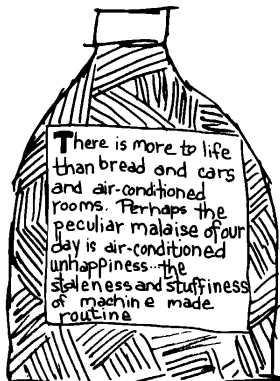 There is more to life
than bread and cars
and air-conditioned
rooms. Perhaps the
peculiar malaise of our
day is air-conditioned
unhappiness...the
staleness and stuffiness
of machine made
routine